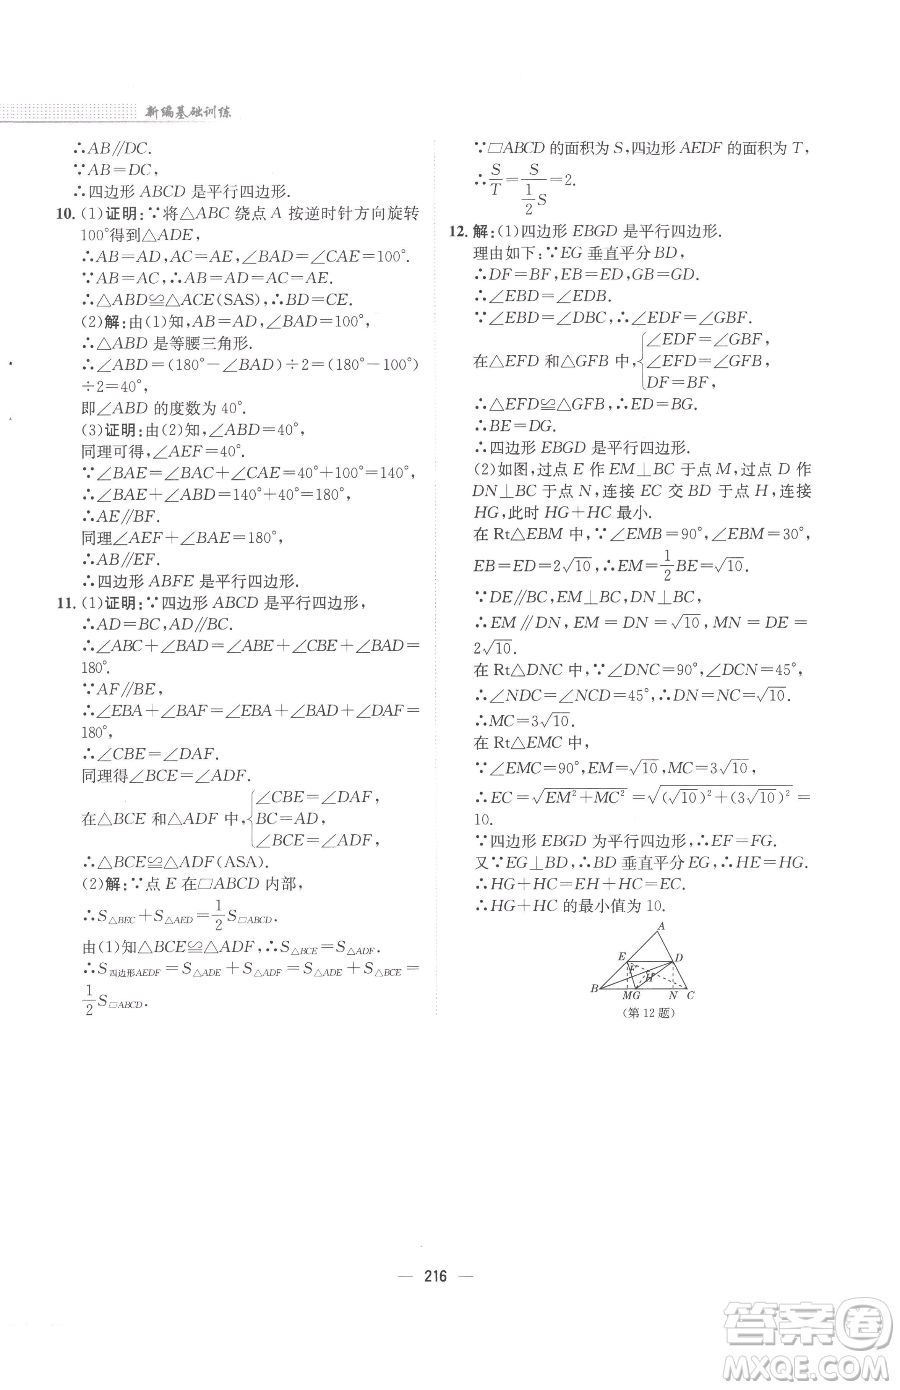 新编基础训练
∴AB∥DC.
∵AB=DC,
∴四边形 ABCD 是平行四边形.
10. (1)证明:∵将△ABC 绕点 A 按逆时针方向旋转
100°得到△ADE,
∴AB=AD,AC=AE,∠BAD=∠CAE=100°.
∵AB=AC,∴AB=AD=AC=AE.
∴△ABD≌△ACE(SAS),∴BD=CE.
(2)解:由(1)知,AB=AD,∠BAD=100°,
∴△ABD 是等腰三角形.
∴∠ABD=(180°-∠BAD)÷2=(180°-100°)
÷2=40°,
即∠ABD 的度数为 40°.
(3)证明:由(2)知,∠ABD=40°,
同理可得,∠AEF=40°.
∵∠BAE=∠BAC+∠CAE=40°+100°=140°,
∴∠BAE+∠ABD=140°+40°=180°,
∴AE∥BF.
同理∠AEF+∠BAE=180°,
∴AB∥EF.
∴四边形 ABFE 是平行四边形.
11. (1)证明:∵四边形 ABCD 是平行四边形,
∴AD=BC,AD∥BC.
∴∠ABC+∠BAD=∠ABE+∠CBE+∠BAD=
180°.
∵AF∥BE,
∴∠EBA+∠BAF=∠EBA+∠BAD+∠DAF=
180°.
∴∠CBE=∠DAF.
同理得∠BCE=∠ADF.
在△BCE 和△ADF 中,{∠CBE=∠DAF,
BC=AD,
∠BCE=∠ADF,
∴△BCE≌△ADF(ASA).
(2)解:∵点 E 在□ABCD 内部,
∴S△BEC+S△AED=1/2 S□ABCD.
由(1)知△BCE≌△ADF,∴S△BCE=S△ADF.
∴S四边形AEDF=S△ADE+S△ADF=S△ADE+S△BCE=
1/2 S□ABCD.
∵□ABCD 的面积为 S,四边形 AEDF 的面积为 T,
∴S/T=S/(1/2 S)=2.
12. 解:(1)四边形 EBGD 是平行四边形.
理由如下:∵EG 垂直平分 BD,
∴DF=BF,EB=ED,GB=GD.
∴∠EBD=∠EDB.
∵∠EBD=∠DBC,∴∠EDF=∠GBF.
在△EFD 和△GFB 中,{∠EDF=∠GBF,
∠EFD=∠GFB,
DF=BF,
∴△EFD≌△GFB,∴ED=BG.
∴BE=DG.
∴四边形 EBGD 是平行四边形.
(2)如图,过点 E 作 EM⊥BC 于点 M,过点 D 作
DN⊥BC 于点 N,连接 EC 交 BD 于点 H,连接
HG,此时 HG+HC 最小.
在 Rt△EBM 中,∵∠EMB=90°,∠EBM=30°,
EB=ED=2√10,∴EM=1/2 BE=√10.
∵DE∥BC,EM⊥BC,DN⊥BC,
∴EM∥DN,EM=DN=√10,MN=DE=
2√10.
在 Rt△DNC 中,∵∠DNC=90°,∠DCN=45°,
∴∠NDC=∠NCD=45°,∴DN=NC=√10.
∴MC=3√10.
在 Rt△EMC 中,
∵∠EMC=90°,EM=√10,MC=3√10,
∴EC=√(EM²+MC²)=√((√10)²+(3√10)²)=
10.
∵四边形 EBGD 为平行四边形,∴EF=FG.
又∵EG⊥BD,∴BD 垂直平分 EG,∴HE=HG.
∴HG+HC=EH+HC=EC.
∴HG+HC 的最小值为 10.
A
E
D
F
H
B
MG
N
C
(第 12 题)
— 216 —
答案圈
MXQE.COM